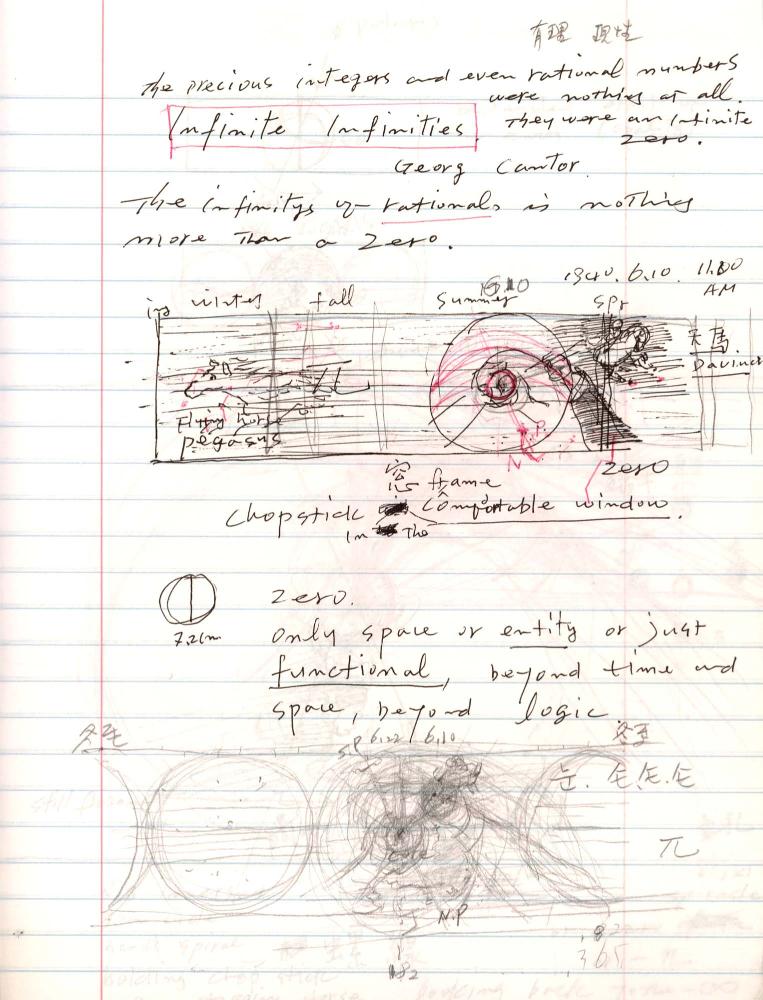 有理 現性
the precious integers and even rational numbers
were nothing at all.
Infinite Infinities
They were an infinite
zero.
Georg Cantor.
The infinitys of rationals is nothing
more than a Zero.
1340. 6.10. 11.00
AM
winter fall summer 6.10 spr
天馬
Davinci
Flying horse
pegasus
N.P.
zero
窓 frame
chopstick comfortable window.
In the
7.21m
Zero.
only space or entity or just
functional, beyond time and
space, beyond logic.
冬至 S.P 6.22 / 6.10 冬至
눈.
core
π
N.P
182
365